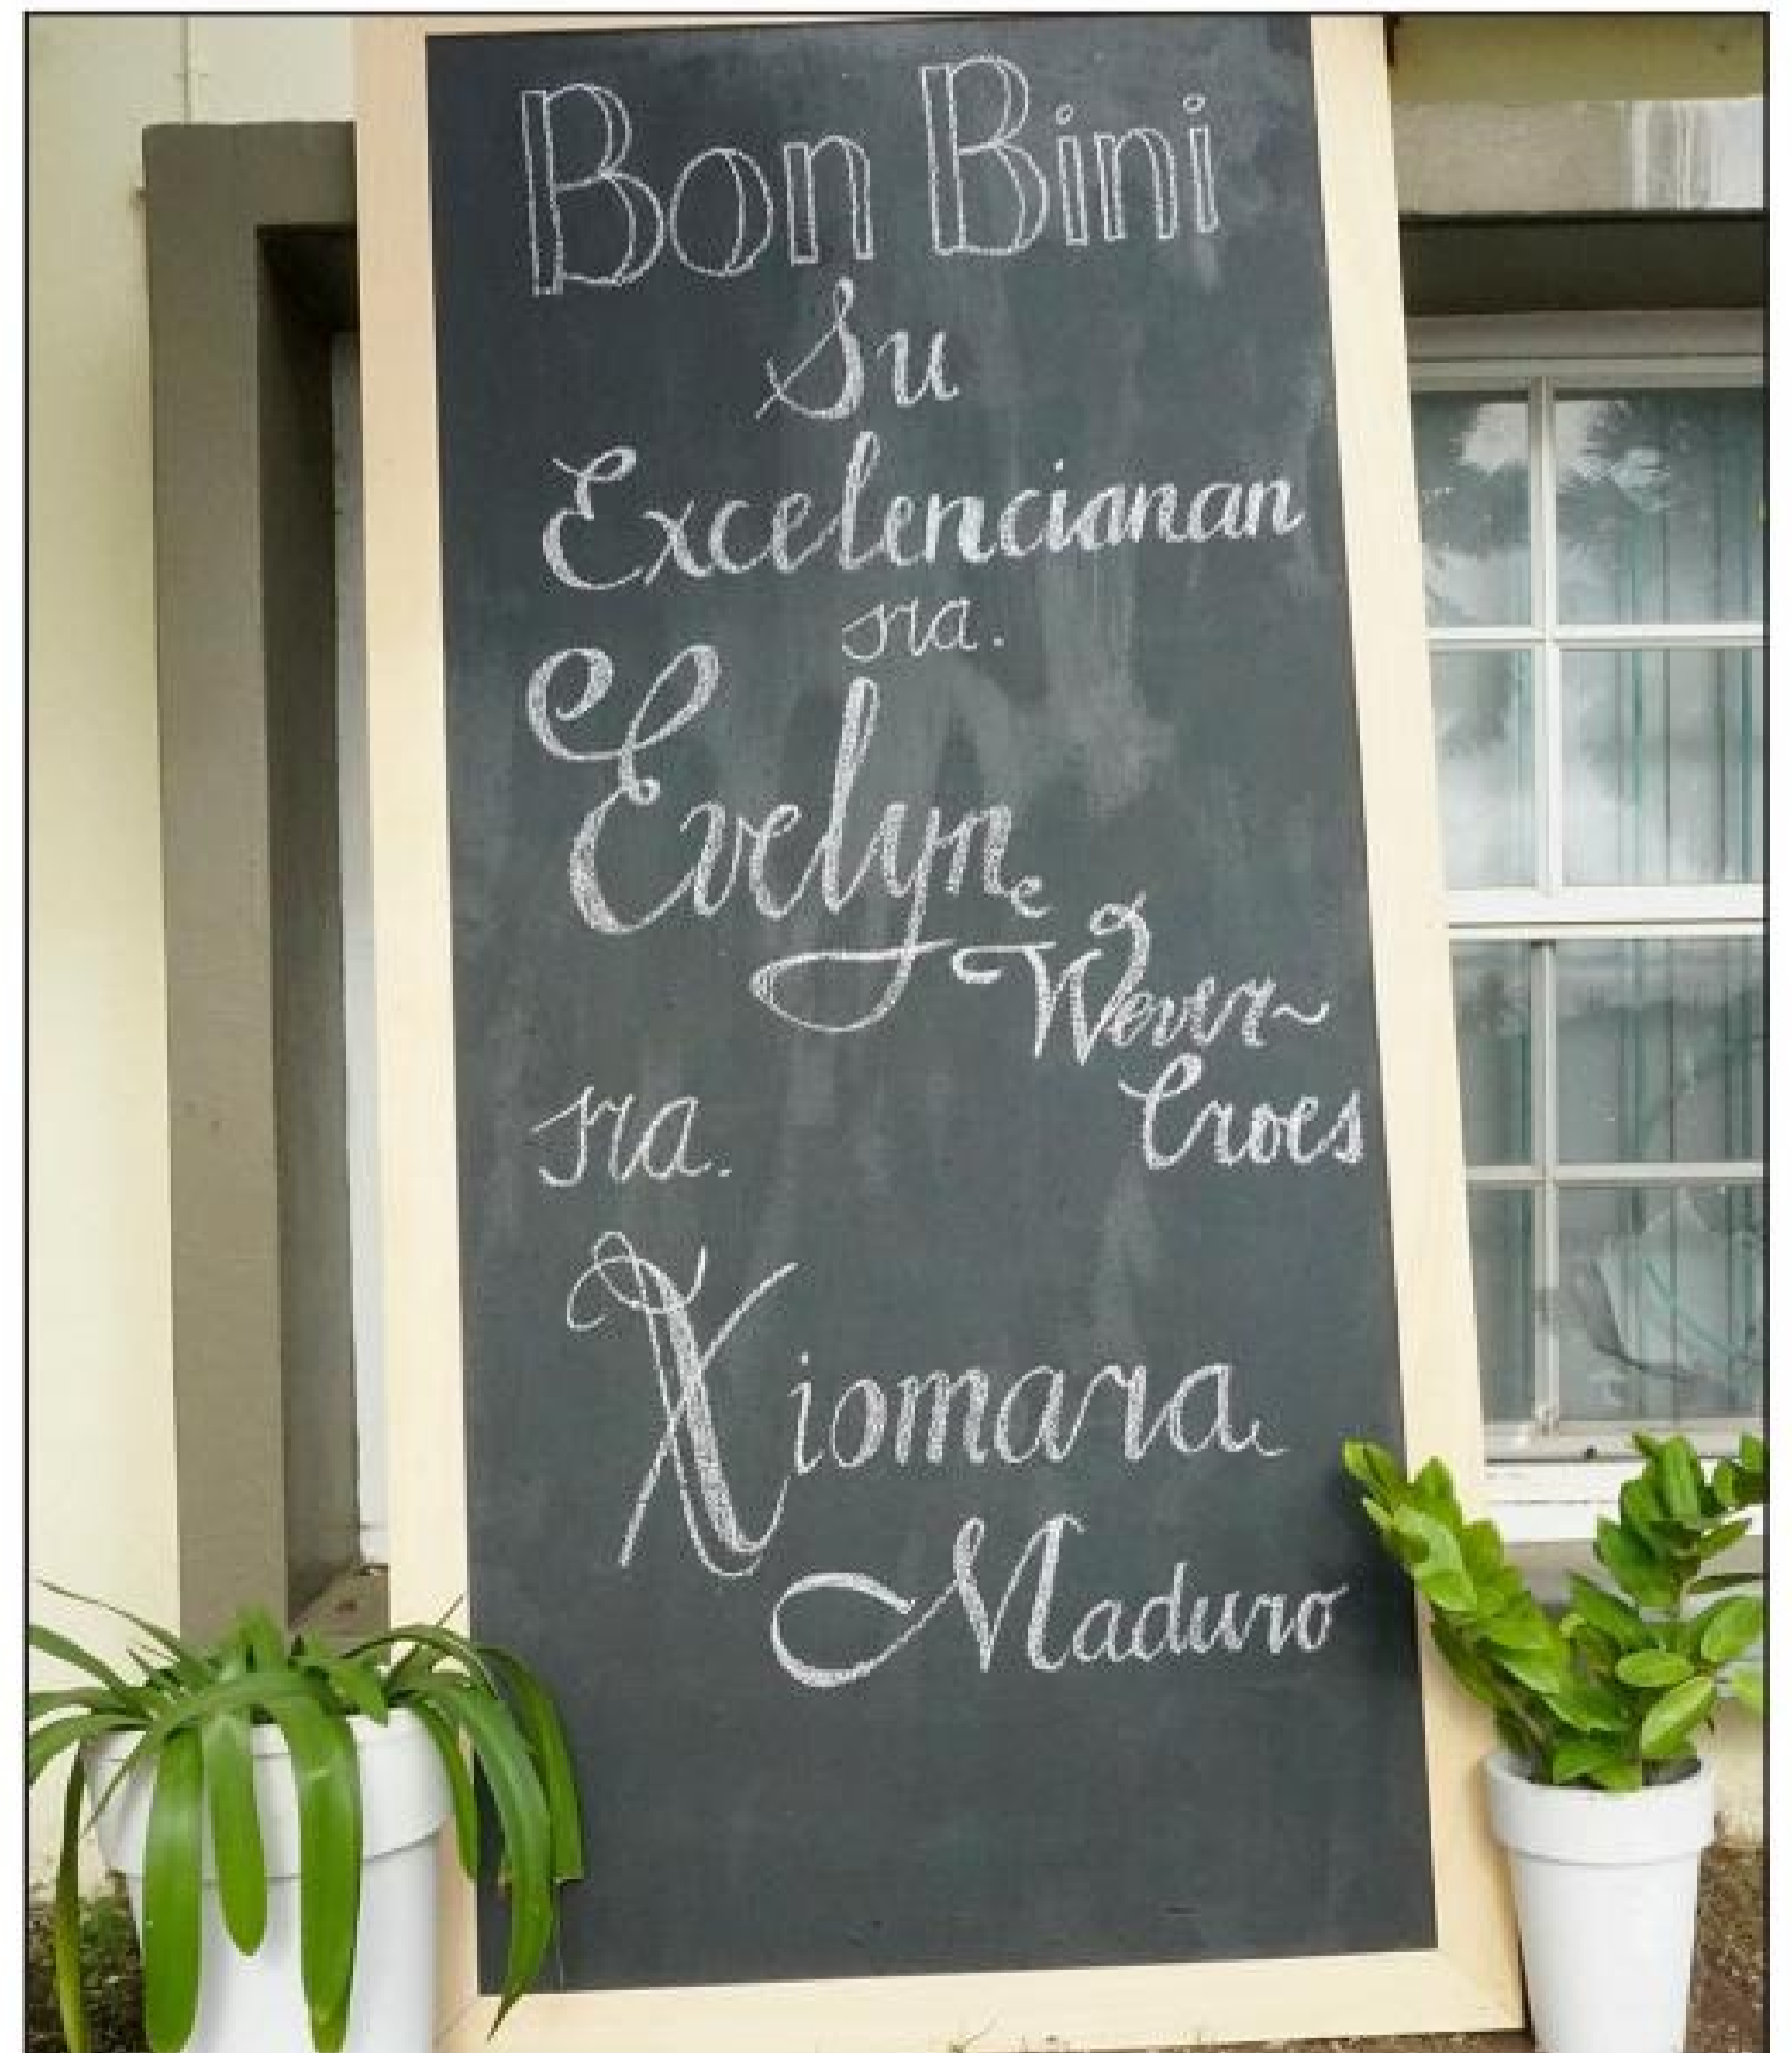 Bon Bini
Su
Excelencianan
sra.
Evelyn
Wever-
Croes
sra.
Xiomara
Maduro